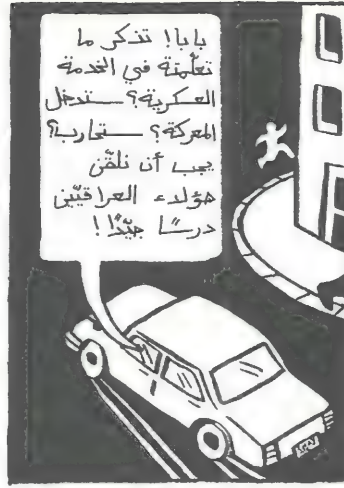 بابا! تذكر ما
تعلّمتة في الخدمة
العسكرية؟ ستدخل
المعركة؟ ستحارب؟
يجب أن نلقّن
هؤلاء العراقيّين
درسًا جيّدًا!